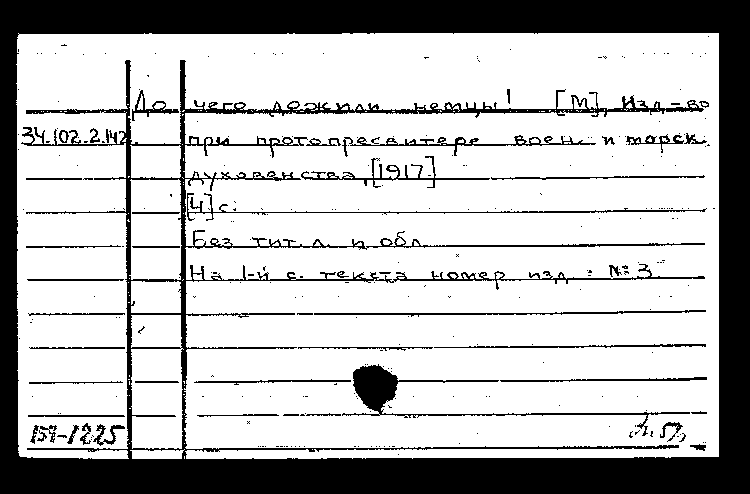 До чего дожили немцы! [М], Изд-во
34.102.2.142. при протопресвитере воен. и морск.
духовенства, [1917.]
[4] с.
Без тит. л. и обл.
На 1-й с. текста номер изд.: № 3.
159-1225